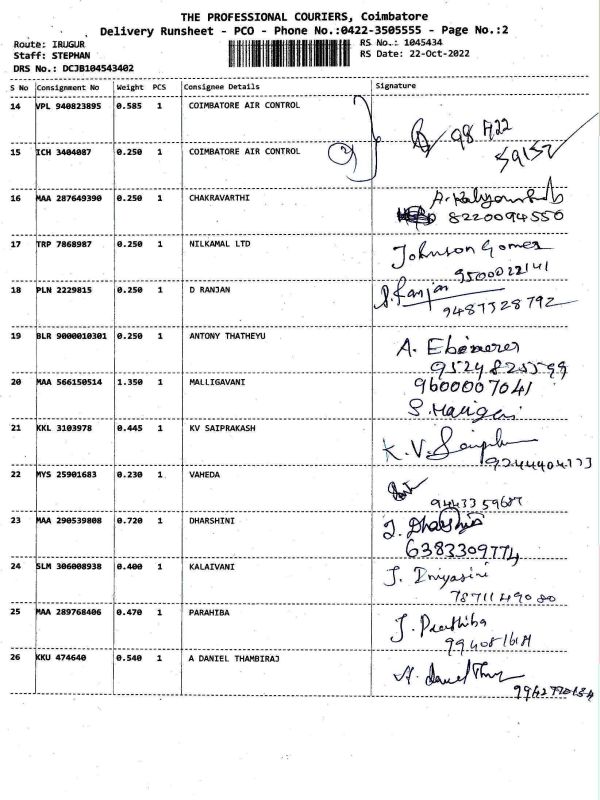 THE PROFESSIONAL COURIERS, Coimbatore
Delivery Runsheet - PCO - Phone No.:0422-3505555 - Page No.:2
Route: IRUGUR RS No.: 1045434
Staff: STEPHAN RS Date: 22-Oct-2022
DRS No.: DCJB104543402
S No Consignment No Weight PCS Consignee Details Signature
14 VPL 940823895 0.585 1 COIMBATORE AIR CONTROL
98422
15 ICH 3404087 0.250 1 COIMBATORE AIR CONTROL 2
59152
16 MAA 287649390 0.250 1 CHAKRAVARTHI
8220094550
17 TRP 7868987 0.250 1 NILKAMAL LTD Johnson Gomes
9500022141
18 PLN 2229815 0.250 1 D RANJAN D. Ranjan
9487328792
19 BLR 9000010301 0.250 1 ANTONY THATHEYU A. Ebenezer
9524825599
20 MAA 566150514 1.350 1 MALLIGAVANI 9600007041
21 KKL 3103978 0.445 1 KV SAIPRAKASH K.V. Saiprakash
9244404173
22 MYS 25901683 0.230 1 VAHEDA
9443359687
23 MAA 290539808 0.720 1 DHARSHINI J. Dharshini
6383309774
24 SLM 306008938 0.400 1 KALAIVANI J. Driyasini
7871149080
25 MAA 289768406 0.470 1 PARAHIBA J. Prathiba
26 KKU 474640 0.540 1 A DANIEL THAMBIRAJ
9942770134